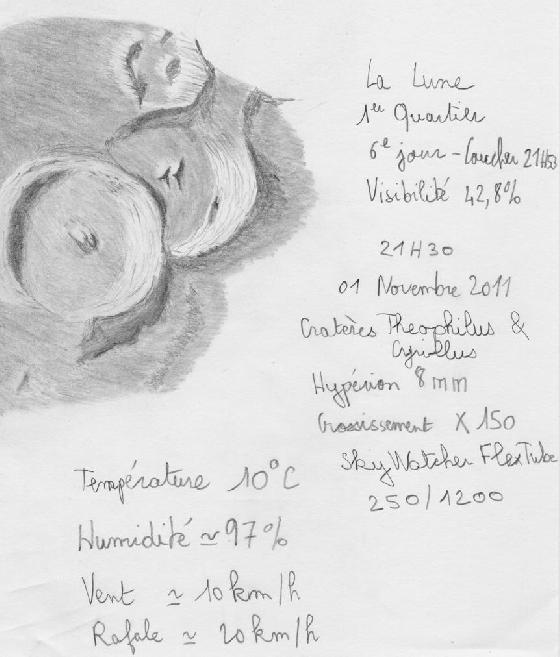 La Lune
1er Quartier
6e jour - Coucher 21H53
Visibilité 42,8%
21H30
01 Novembre 2011
Cratères Theophilus &
Cyrillus
Hypérion 8mm
Grossissement X 150
SkyWatcher FlexTube
250/1200
Température 10°C
Humidité ≃ 97%
Vent ≃ 10km/h
Rafale ≃ 20km/h